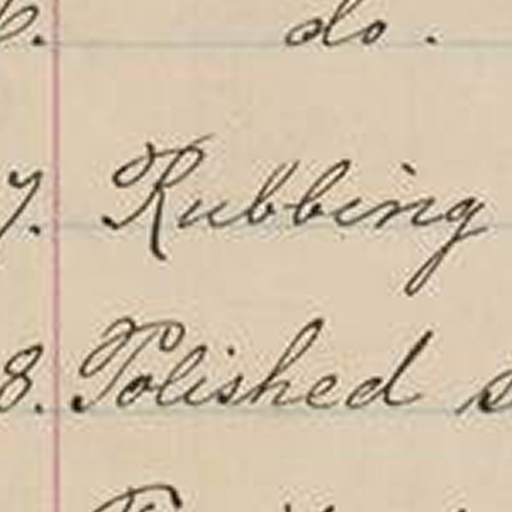 6. do.
7. Rubbing
8. Polished